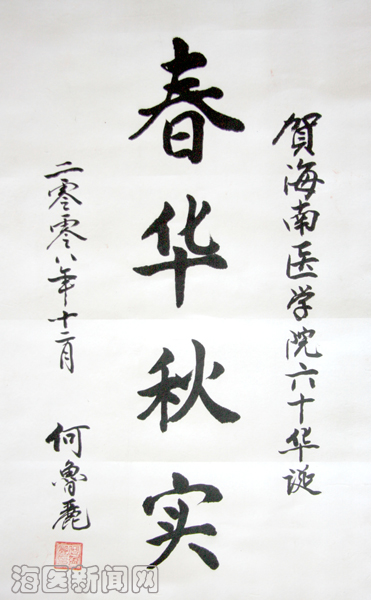 贺海南医学院六十华诞
春华秋实
二零零八年十二月
何鲁丽
海医新闻网